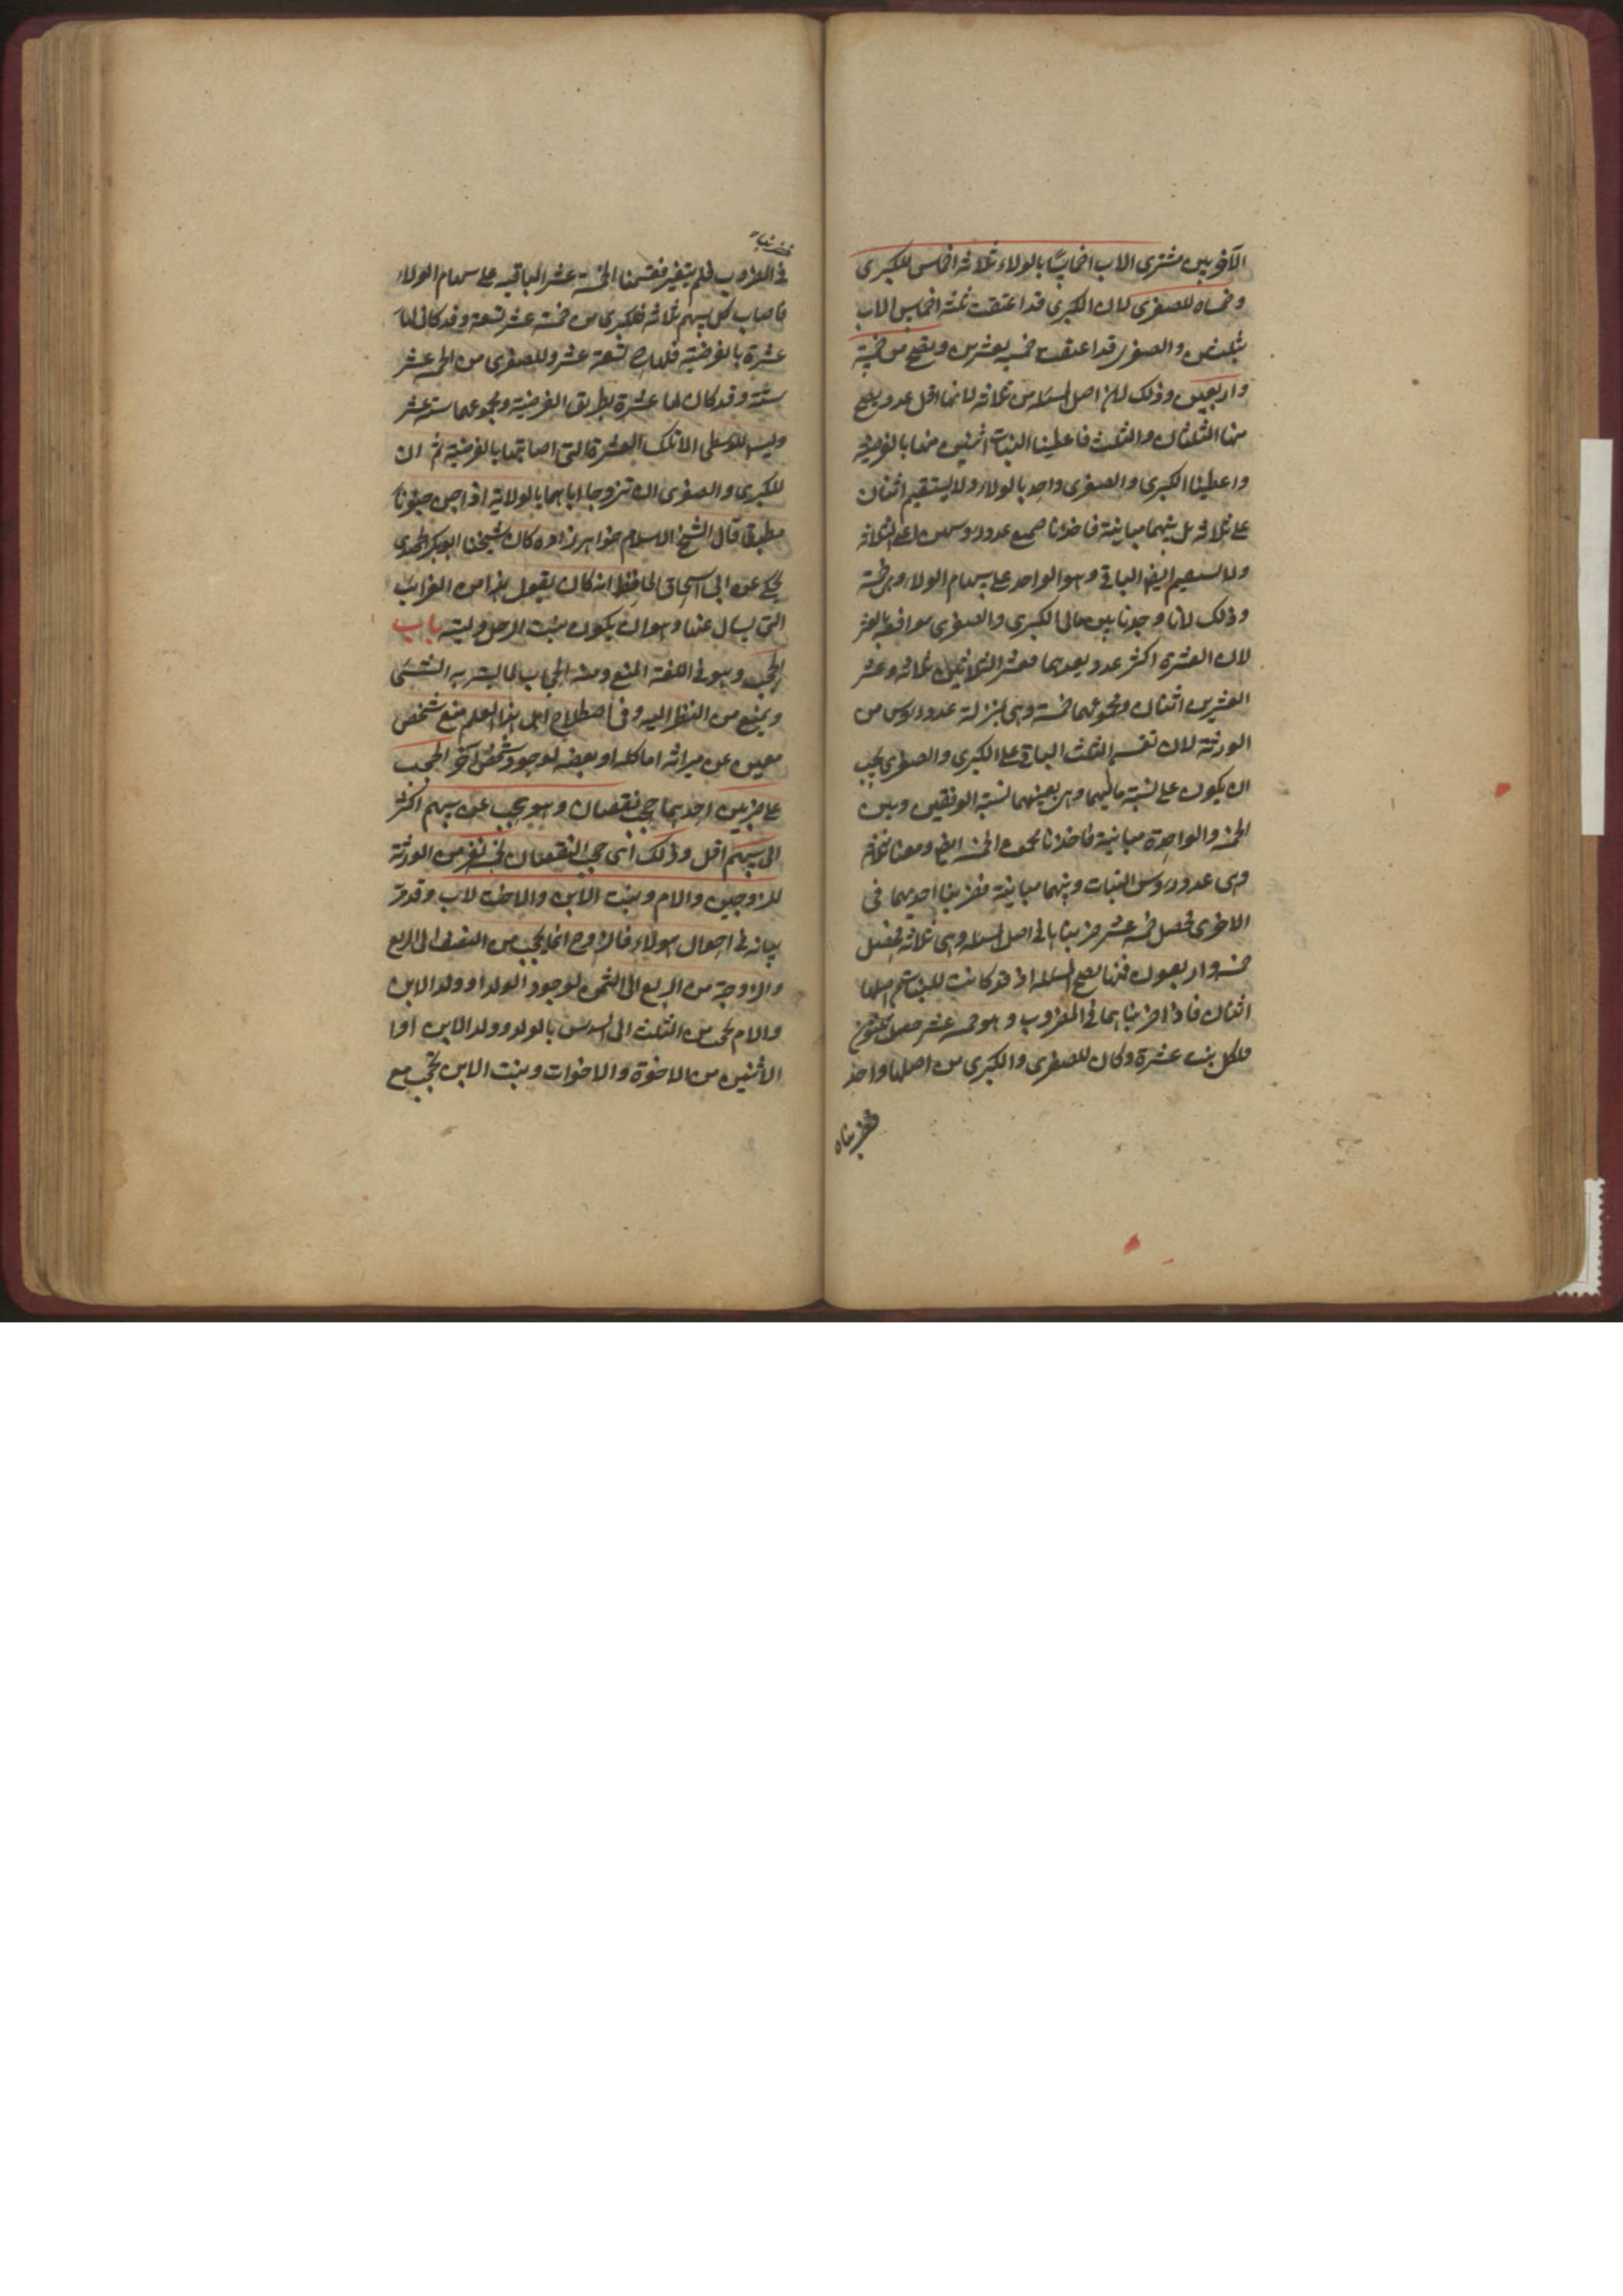 الآخر بين مشتري الاب اخماسًا بالولاء ثلاثة اخماس للكبرى
وخمساه للصغرى لان الكبرى قد اعتقت ثلثة اخماس الاب
بثلثين والصغرى قد اعتقت خمسيه بعشرين وتصح من خمسة
واربعين وذلك لان اصل المسئلة من ثلاثة لانها اقل عدد يصح
منها الثلثان والثلث فاعطينا البنات اثنين منها بالفرضية
واعطينا الكبرى والصغرى واحد بالولاء ولا يستقيم اثنان
على ثلاثة بل بينهما مباينة فاخذنا جميع عدد رؤسهن اعني الثلاثة
ولا يستقيم ايضا الباقي وهو الواحد على سهام الولاء وهي خمسة
وذلك لانا وجدنا بين مالي الكبرى والصغرى موافقة بالعشر
لان العشرة اكثر عدد يعدهما فعشر الثلاثين ثلاثة وعشر
العشرين اثنان ومجموعهما خمسة وهي بمنزلة عدد رؤس من
الورثة لان تقسيم الثلث الباقي على الكبرى والصغرى يجب
ان يكون على نسبة ماليهما وهي بعينهما نسبة الوفقين وبين
الخمسة والواحدة مباينة فاخذنا مجموع الخمسة ايضا ومعنا ثلاثة
وهي عدد رؤس البنات وبينهما مباينة فضربنا احديهما في
الاخرى فحصل خمسة عشر ضربناها في اصل المسئلة وهي ثلاثة فحصل
خمسة واربعون فمنها تصح المسئلة اذ قد كانت للبنات من اصلها
اثنان فاذا ضربناهما في المضروب وهو خمسة عشر حصل ثلثون
فلكل بنت عشرة وكان للصغرى والكبرى من اصلها واحد
فضربناه
فضربناه
في المضروب فلم يتغير فقسمنا الخمسة عشر الباقية على سهام الولاء
فاصاب كل سهم ثلاثة فللكبرى من خمسة عشر تسعة وقد كان لها
عشرة بالفرضية فلها تسعة عشر وللصغرى من الخمسة عشر
ستة وقد كان لها عشرة بطريق الفرضية ومجموعهما ستة عشر
وليس للوسطى الا تلك العشرة التي اصابتها بالفرضية ثم ان
للكبرى والصغرى ان تزوجا اباهما بالولاية اذا جن جنونًا
مطبقا قال الشيخ الاسلام خواهر زاده كان شيخنا ابو بكر الجندي
يحكي عن ابي اسحاق الحافظ انه كان يقول هذا من الغرائب
التي يسال عنها وهو ان يكون بنت الرجل وليته باب
الحجب وهو في اللغة المنع ومنه الحجاب لما يستر به الشئ
ويمنع من النظر اليه وفي اصطلاح اهل هذا العلم منع شخص
معين عن ميراثه اما كله او بعضه لوجود شخص آخر الحجب
على ضربين احدهما حجب نقصان وهو حجب عن سهم اكثر
الى سهم اقل وذلك اي حجب النقصان لخمسة نفر من الورثة
للزوجين والام وبنت الابن والاخت لاب وقد مر
بيانه في احوال هؤلاء فالزوج انما يحجب من النصف الى الربع
والزوجة من الربع الى الثمن لوجود الولد او ولد الابن
والام تحجب من الثلث الى السدس بالولد وولد الابن او
الاثنين من الاخوة والاخوات وبنت الابن تحجب مع